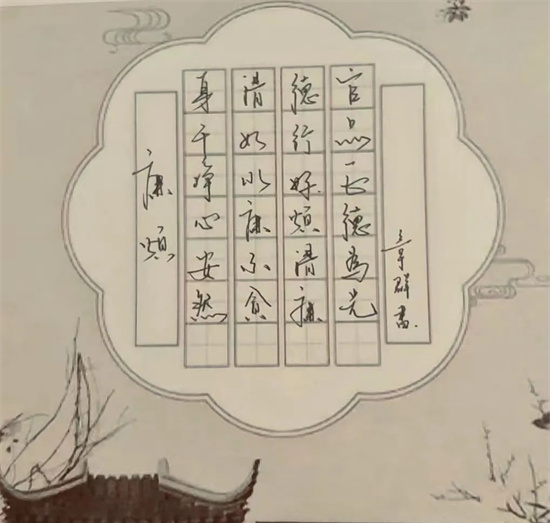 廉颂
身干净心安然
清如水廉不贪
德行好颂清廉
官品正德为先
章群书